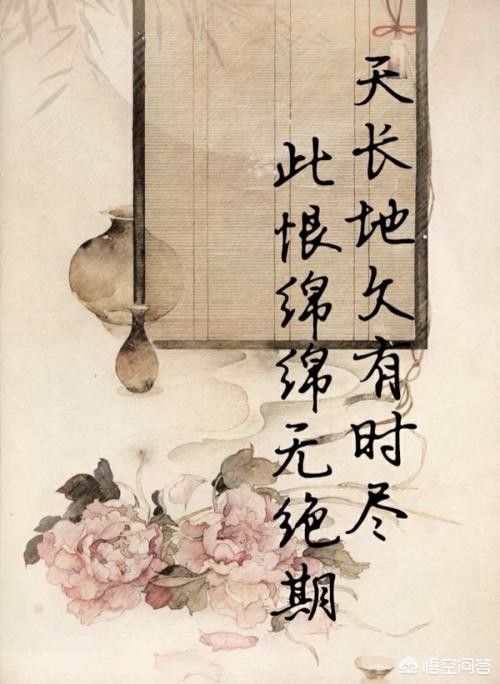 天长地久有时尽
此恨绵绵无绝期
悟空问答